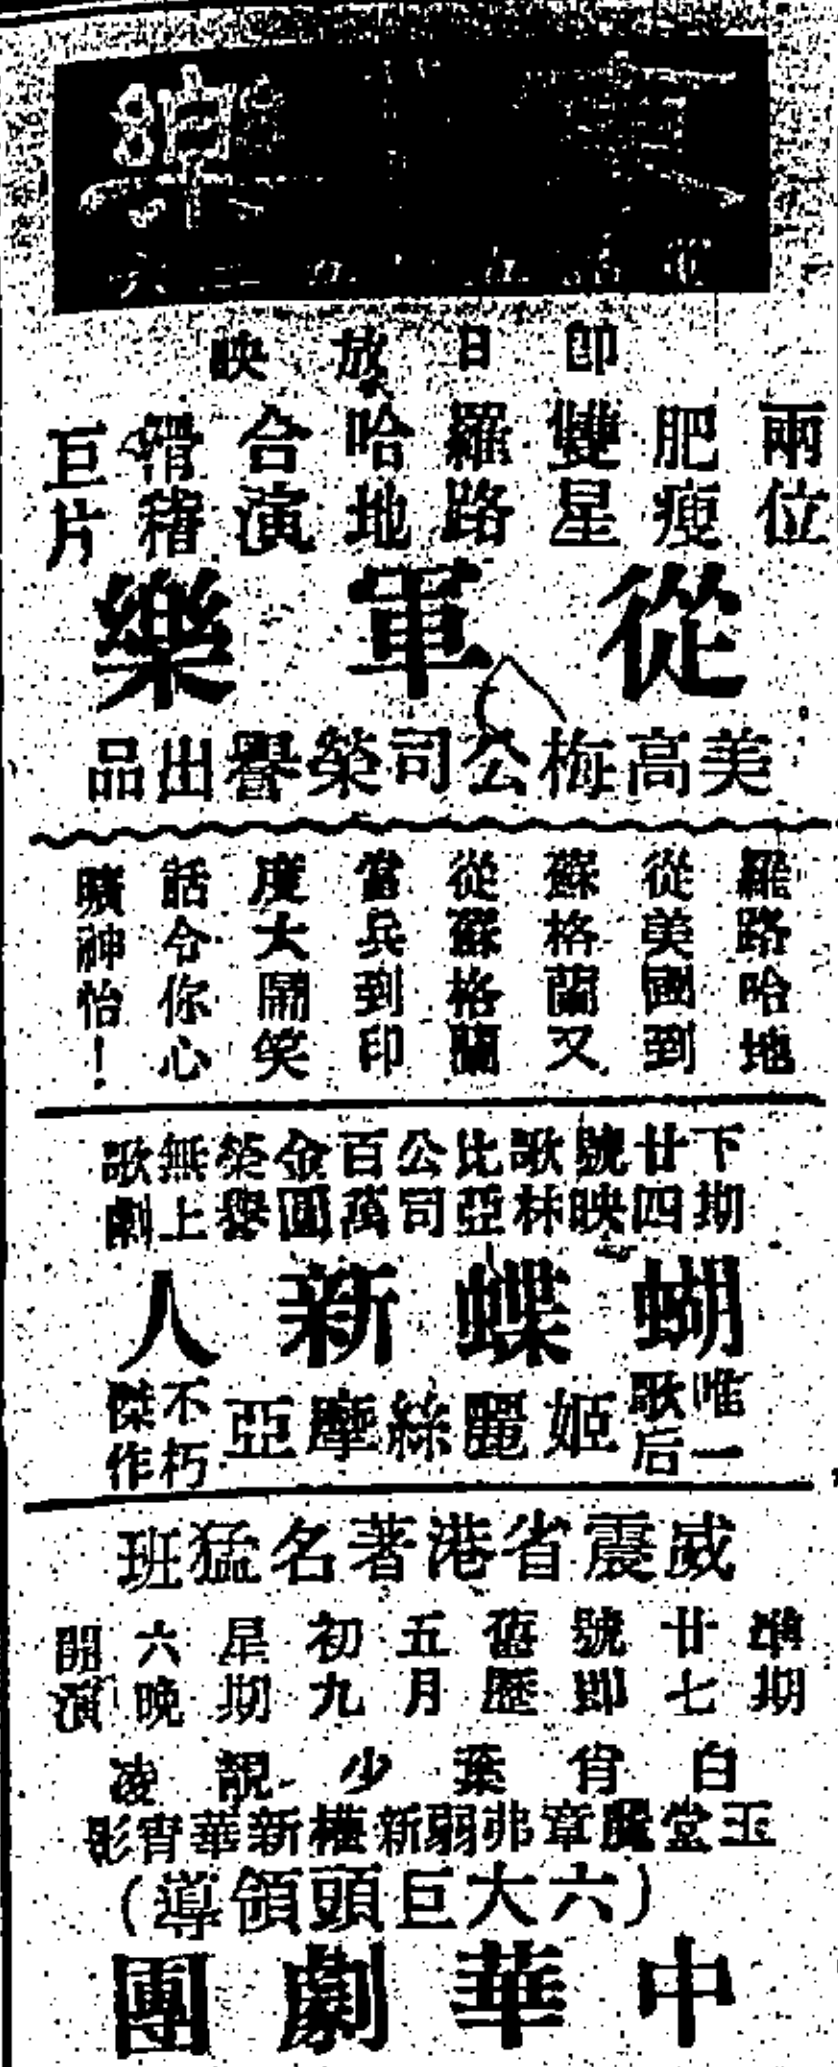 樂
即日放映
兩位
肥瘦
雙星
羅路
哈地
合演
滑稽
巨片
從軍樂
美高梅公司榮譽出品
羅路哈地
從美國到
蘇格蘭又
從蘇格蘭
當兵到印
度大鬧笑
話令你心
曠神怡！
下期
廿四
號映
歌林
比亞
公司
百萬
金圓
榮譽
無上
歌劇
蝴蝶新人
唯一
歌后
姬麗絲摩亞
不朽
傑作
威震省港著名猛班
準期
廿七
號即
舊歷
五月
初九
星期
六晚
開演
白玉堂
肖麗章
葉弗弱
少新權
靚新華
凌宵影
（六大巨頭領導）
中華劇團